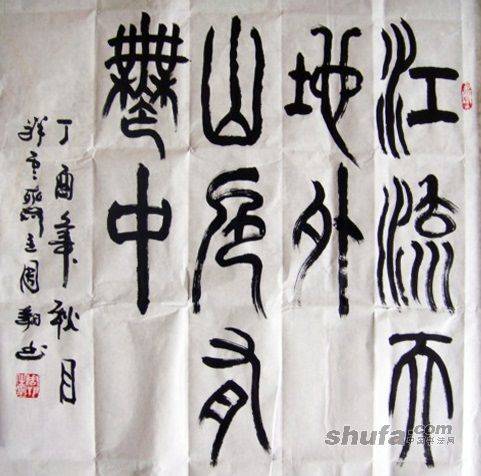 江流天
地外
山色有
無中
丁酉年秋月
雲齋主周翔书
shufa.com
中国书法网